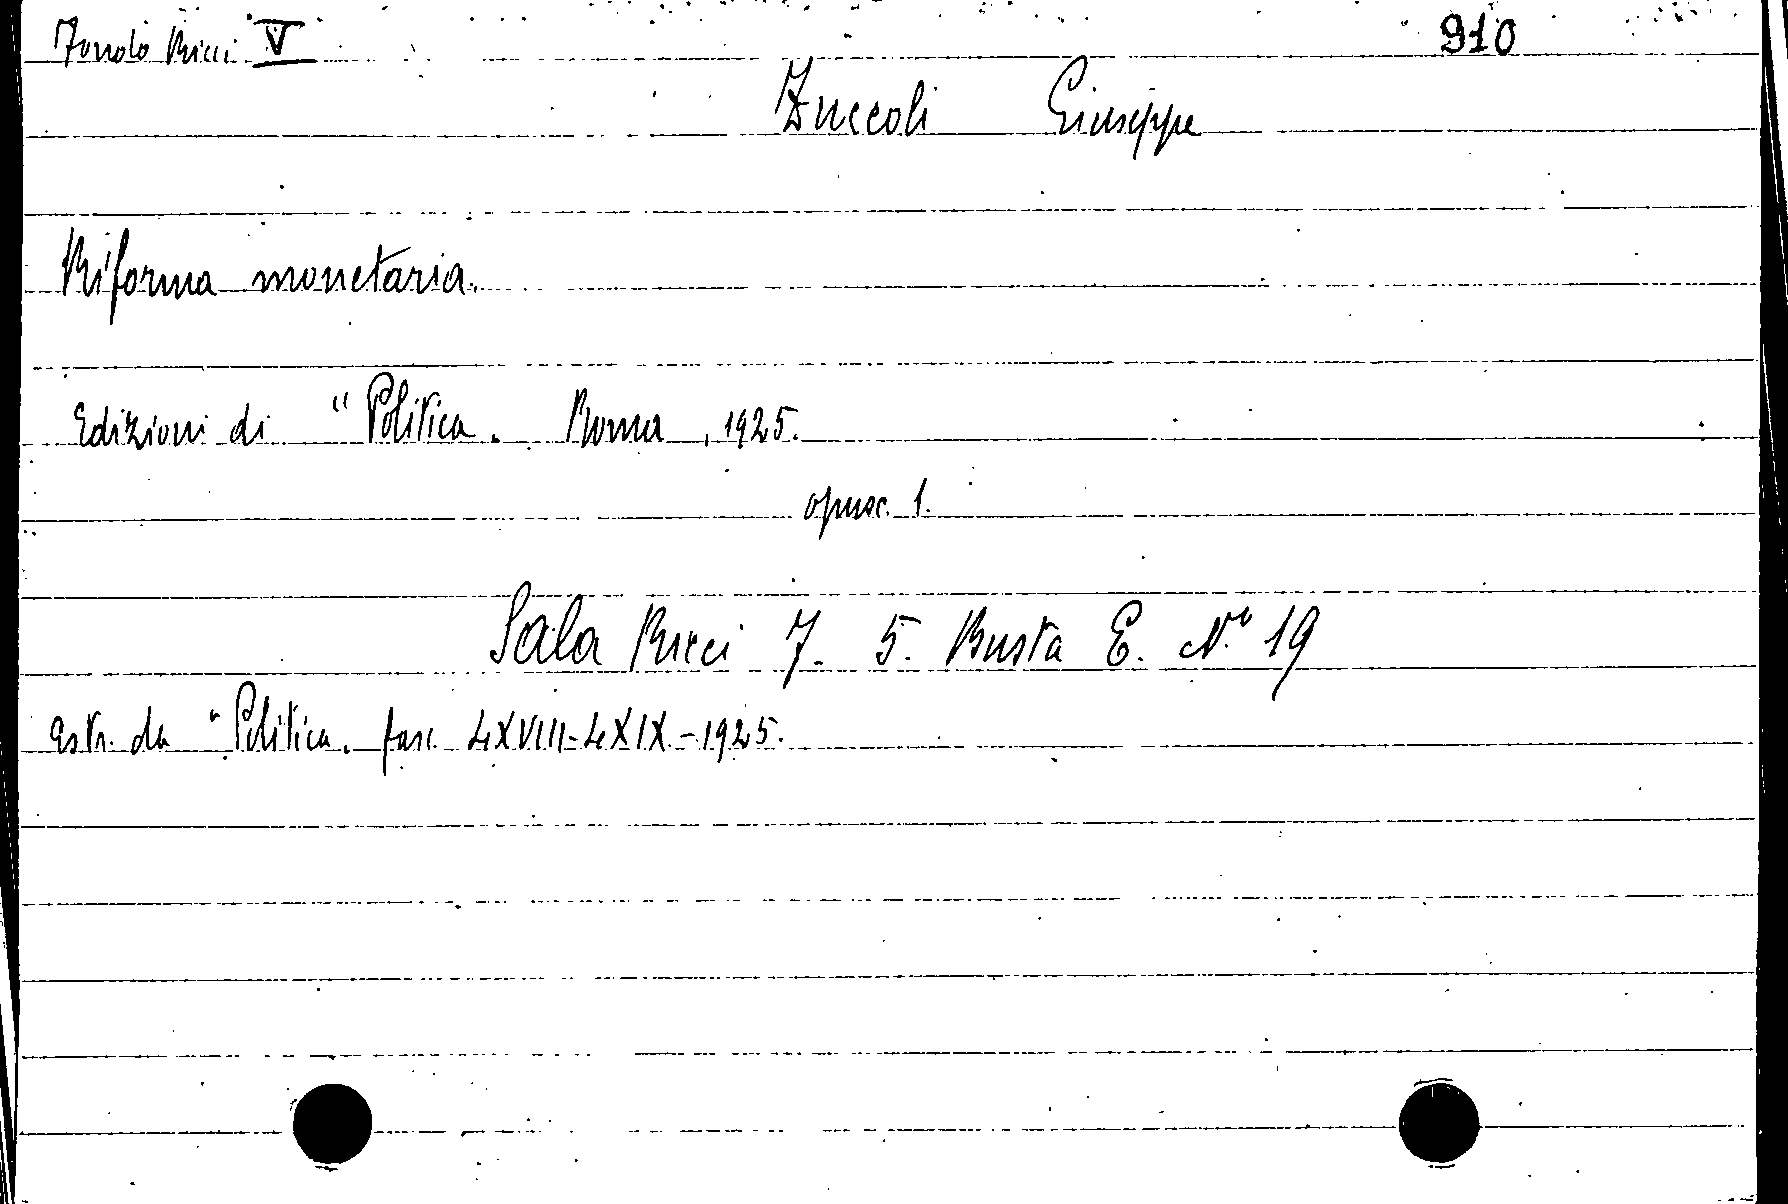 Fondo Ricci V 910
Zuccoli Giuseppe
Riforma monetaria.
Edizioni di "Politica. Roma, 1925.
opusc. 1.
Sala Ricci 7. 5. Busta E. N.° 19
Estr. da "Politica. fasc. LXVIII-LXIX-1925.